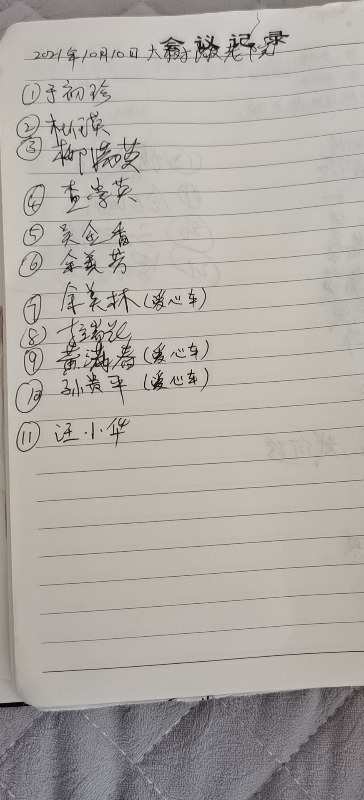 会议记录
2021年10月10日大
①于初珍
②杜瑛
③柳满英
④查学英
⑤吴金香
⑥余美芳
⑦余美林(爱心车)
⑧
⑨黄满春(爱心车)
⑩孙贵平(爱心车)
⑪汪小华